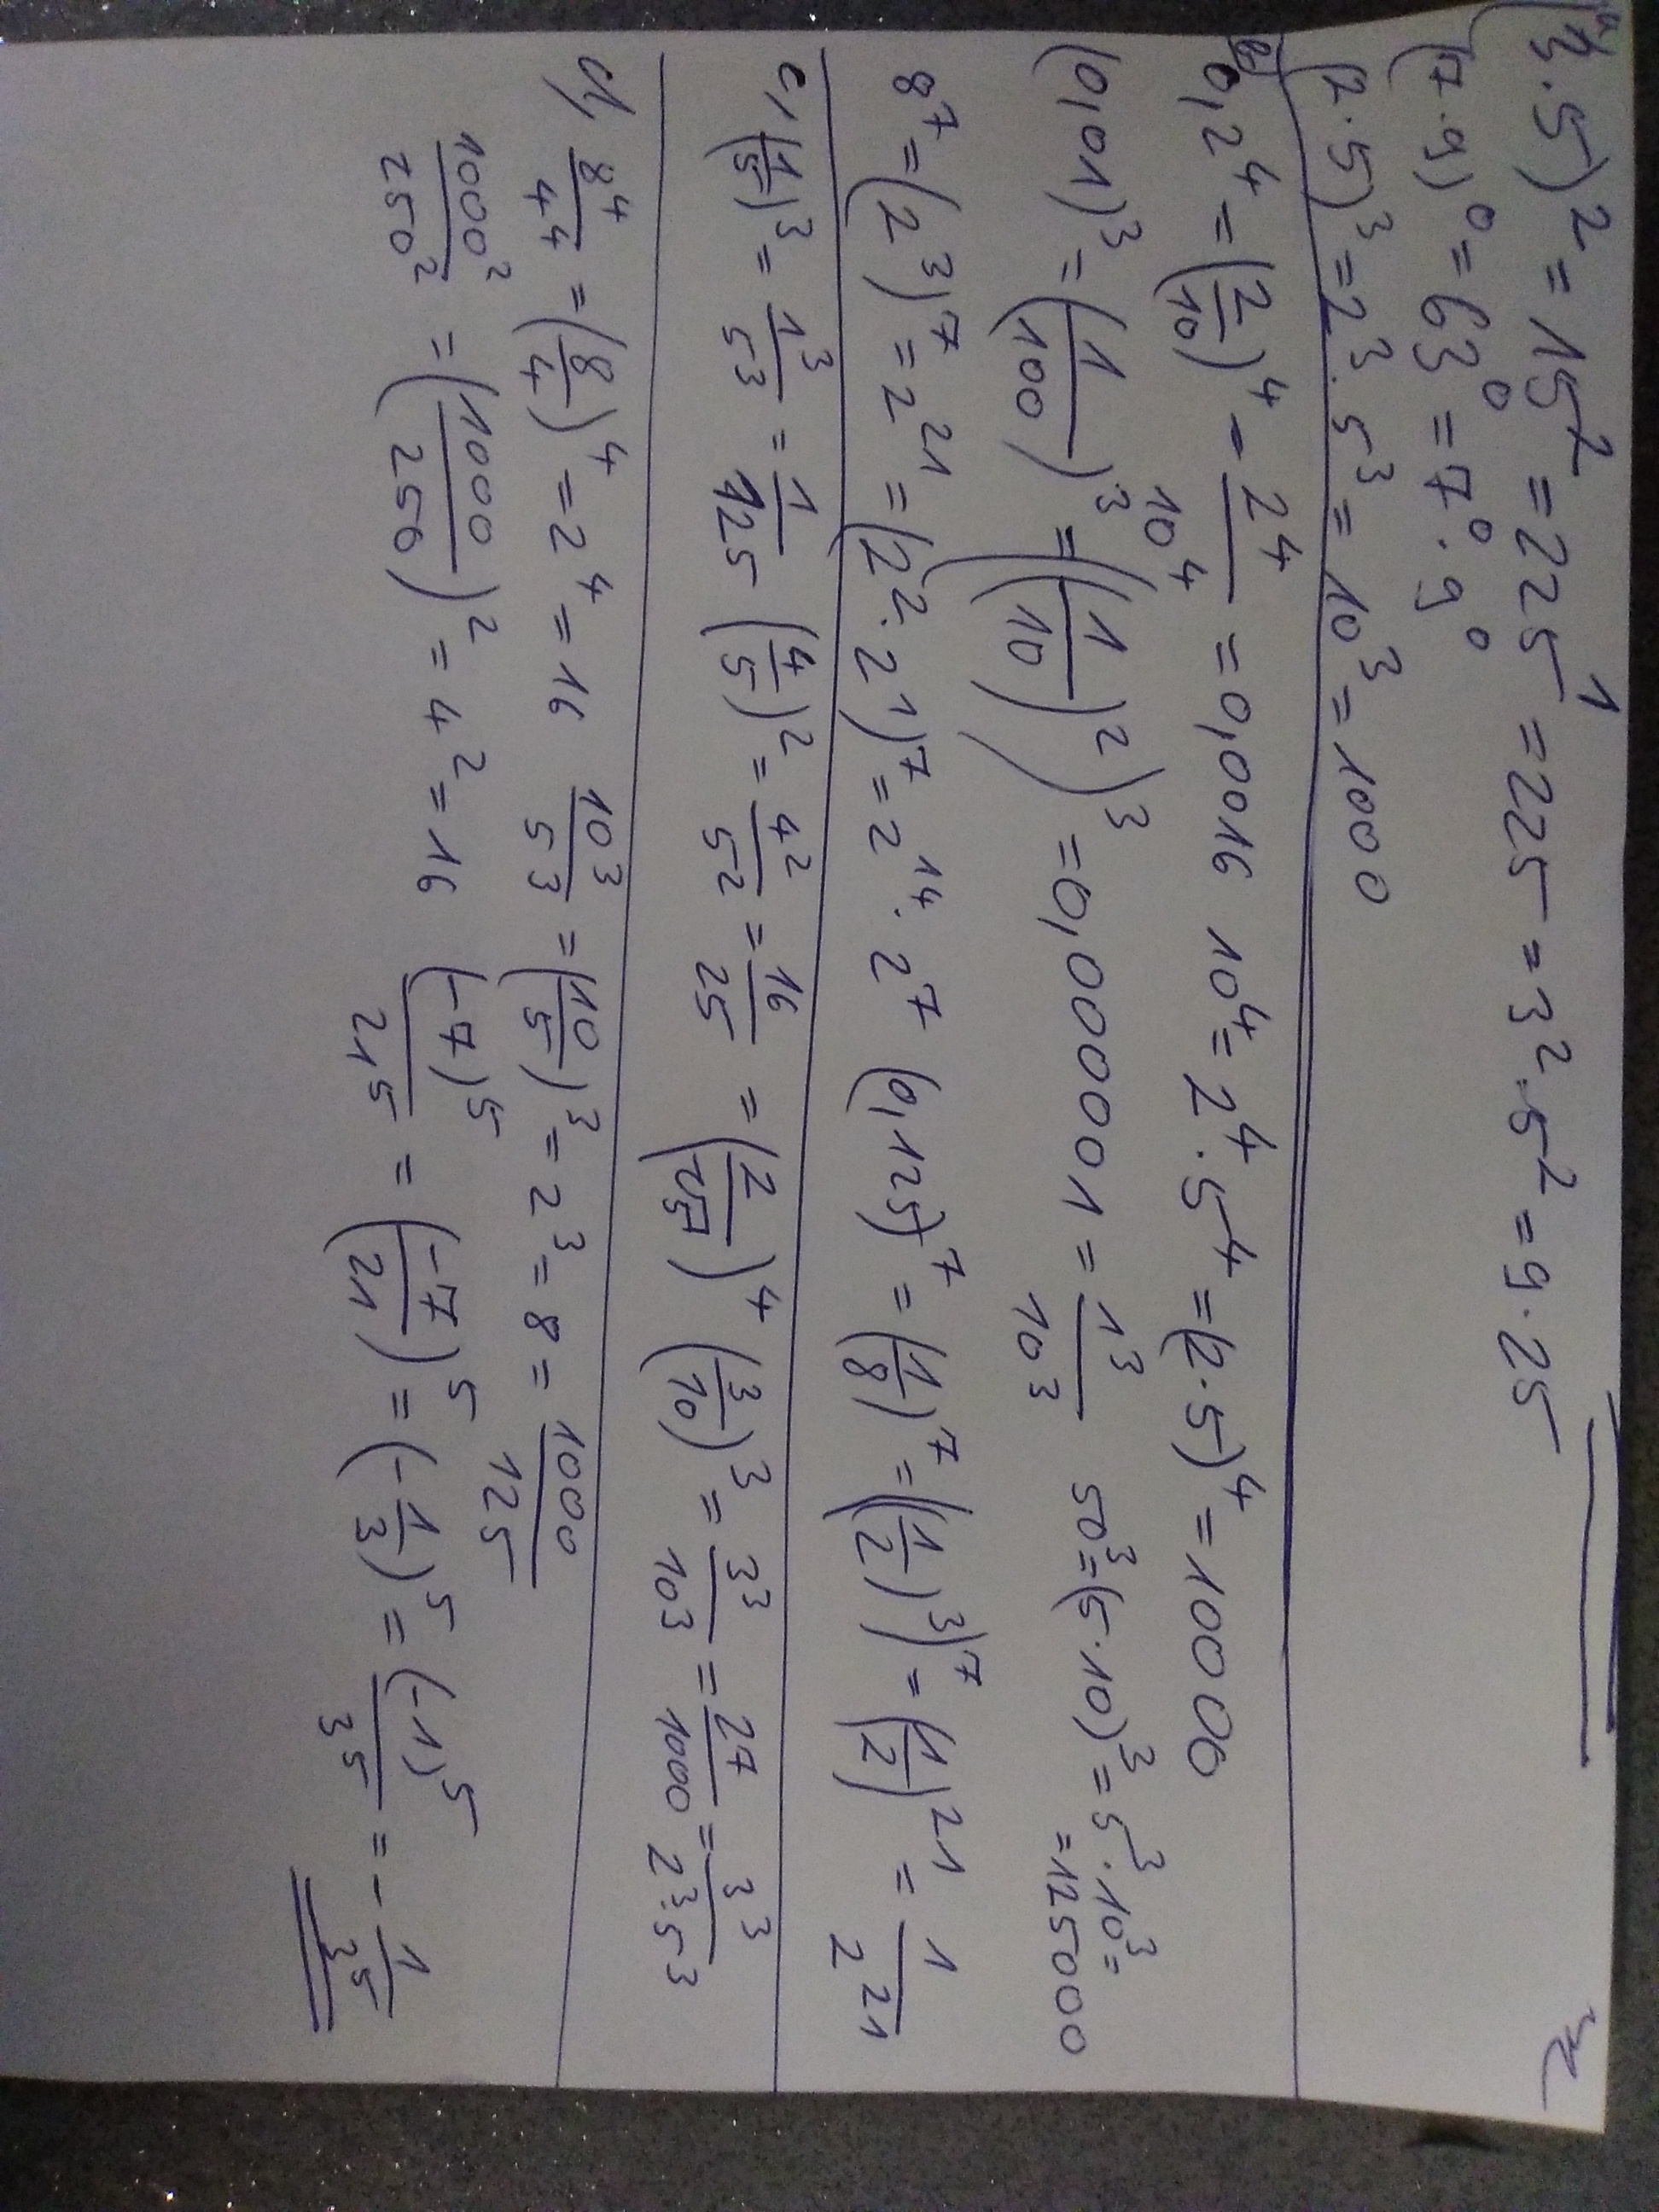 (3·5)² = 15² = 225¹ = 225 = 3²·5² = 9·25
(7·9)⁰ = 63⁰ = 7⁰·9⁰
(2·5)³ = 2³·5³ = 10³ = 1000
b) 0,2⁴ = (2/10)⁴ = 2⁴/10⁴ = 0,0016 10⁴ = 2⁴·5⁴ = (2·5)⁴ = 10000
(0,01)³ = (1/100)³ = ((1/10)²)³ = 0,000001 = 1³/10³ 50³ = (5·10)³ = 5³·10³ =
= 125000
8⁷ = (2³)⁷ = 2²¹ = (2²·2¹)⁷ = 2¹⁴·2⁷ (0,125)⁷ = (1/8)⁷ = ((1/2)³)⁷ = (1/2)²¹ = 1/2²¹
c, (1/5)³ = 1³/5³ = 1/125 (4/5)² = 4²/5² = 16/25 = (2/√5)⁴ (3/10)³ = 3³/10³ = 27/1000 = 3³/2³·5³
d, 8⁴/4⁴ = (8/4)⁴ = 2⁴ = 16 10³/5³ = (10/5)³ = 2³ = 8 = 1000/125
1000²/250² = (1000/250)² = 4² = 16 (-7)⁵/21⁵ = (-7/21)⁵ = (-1/3)⁵ = (-1)⁵/3⁵ = -1/3⁵